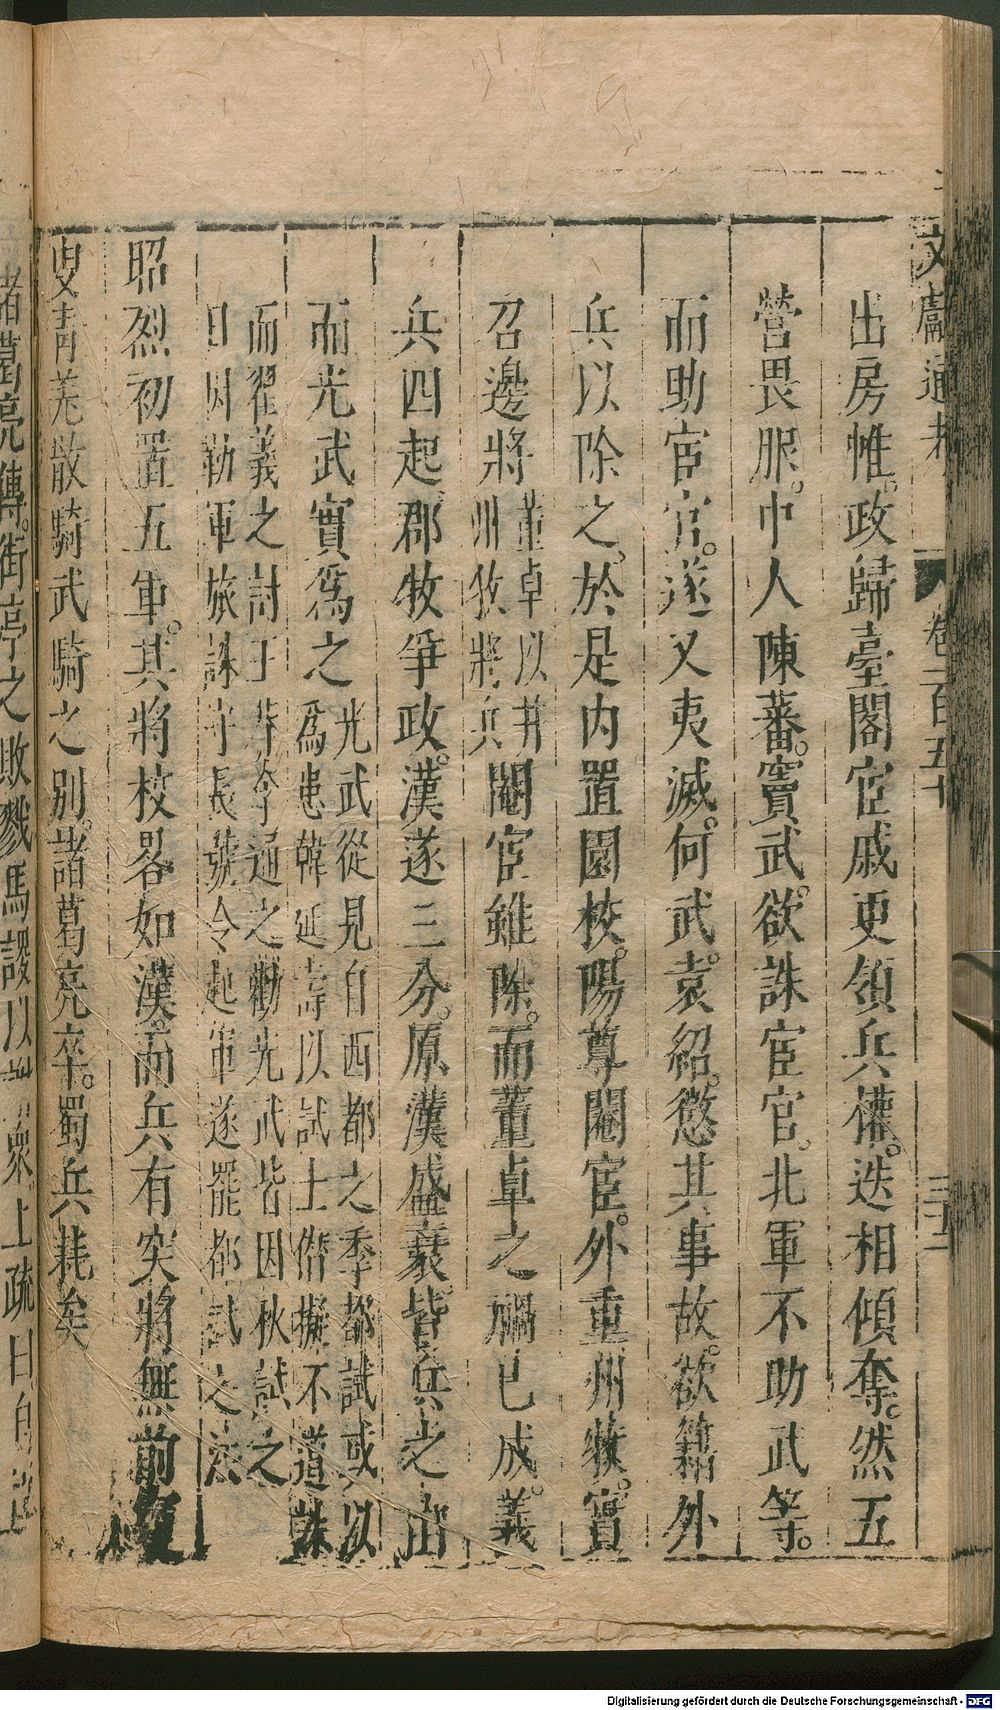 文獻通考 卷一百五十 三十二
出房帷。政歸臺閣宦戚更領兵權。迭相傾奪。然五
營畏服。中人陳蕃。竇武。欲誅宦官。北軍不助武等。
而助宦官。遂又夷滅。何武。袁紹。懲其事故。欲籍外
兵以除之。於是內置園校。陽尊閹宦。外重州牧。實
召邊將
董卓以并
州牧將兵
閹宦雖除。而董卓之禍已成。義
兵四起。郡牧爭政。漢遂三分。原漢盛衰。皆兵之出
而光武實爲之
光武從見自西都之季都試或以
爲患韓延壽以試士僣擬不道誅
而翟義之討王莽李通之勸光武皆因秋試之
日因勒軍旅誅守長號令起軍遂罷都試之法
昭烈初置五軍。其將校畧如漢。而兵有突將無前
叟青羌散騎武騎之別。諸葛亮卒。蜀兵耗矣
諸葛亮傳。街亭之敗戮馬謖以 衆上疏曰自
Digitalisierung gefördert durch die Deutsche Forschungsgemeinschaft - DFG